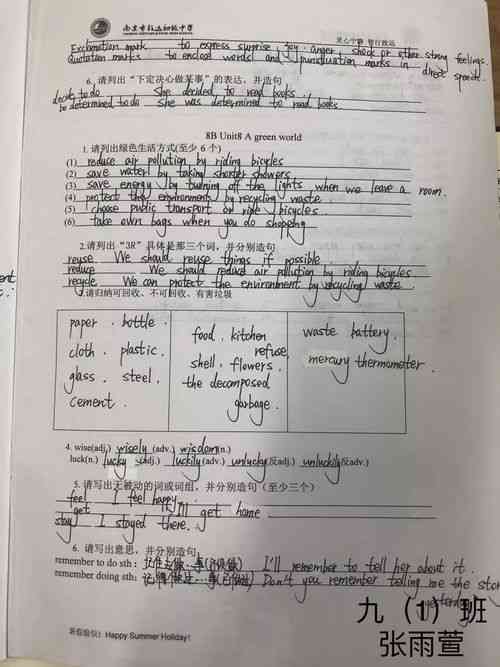 南京市致远初级中学
Exclamation mark to express surprise, joy, anger, shock or other strong feelings.
Quotation marks to enclose words and punctuation marks in direct speech.
6. 请列出“下定决心做某事”的表达，并造句
decide to do She decided to read books.
be determined to do She was determined to read books
8B Unit8 A green world
1. 请列出绿色生活方式(至少 6 个)
(1) reduce air pollution by riding bicycles
(2) save water by taking shorter showers
(3) save energy by turning off the lights when we leave a room.
(4) protect the environment by recycling waste
(5) choose public transport or ride bicycles.
(6) take own bags when you do shopping
2.请列出“3R”具体是那三个词，并分别造句
reuse We should reuse things if possible.
reduce We should reduce air pollution by riding bicycles
recycle We can protect the environment by recycling waste.
3.请归纳可回收、不可回收、有害垃圾
paper . bottle .
cloth . plastic .
glass . steel .
cement .
food . kitchen refuse,
shell . flowers .
the decomposed garbage.
waste battery.
mercury thermometer .
4. wise(adj.) wisely (adv.) wisdom(n.)
luck(n.) lucky (adj.) luckily(adv.) unlucky(反adj.) unluckily(反adv.)
5. 请写出无被动的词或词组，并分别造句（至少三个）
feel I feel happy.
get I'll get home
stay I stayed there.
6. 请写出意思，并分别造句
remember to do sth: I'll remember to tell her about it.
remember doing sth: Don't you remember telling me the story yesterday
暑假愉快! Happy Summer Holiday!
九（1）班
张雨萱